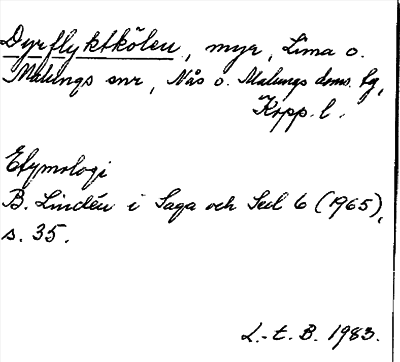 Dyrflyktkölen, myr, Lima o.
Malungs snr, Nås o. Malungs doms. tg,
Kopp. l.
Etymologi
B. Lindén i Saga och Sed 6 (1965),
s. 35.
L.-t. B. 1983.